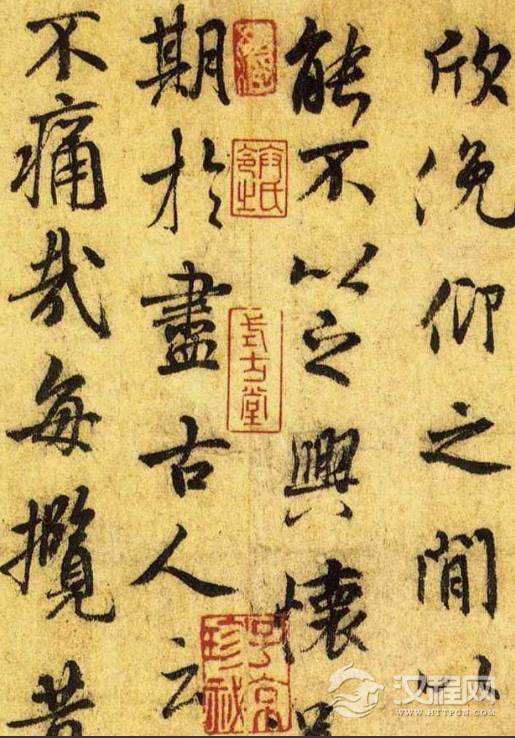 欣俛仰之閒以
能不以之興懷
期於盡古人云
不痛哉每攬昔
式古堂
子京珍秘
汉程网
WWW.HTTPCN.COM